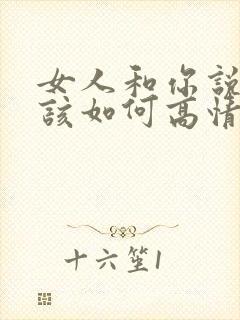 女人和你說
該如何高情
十六笙1